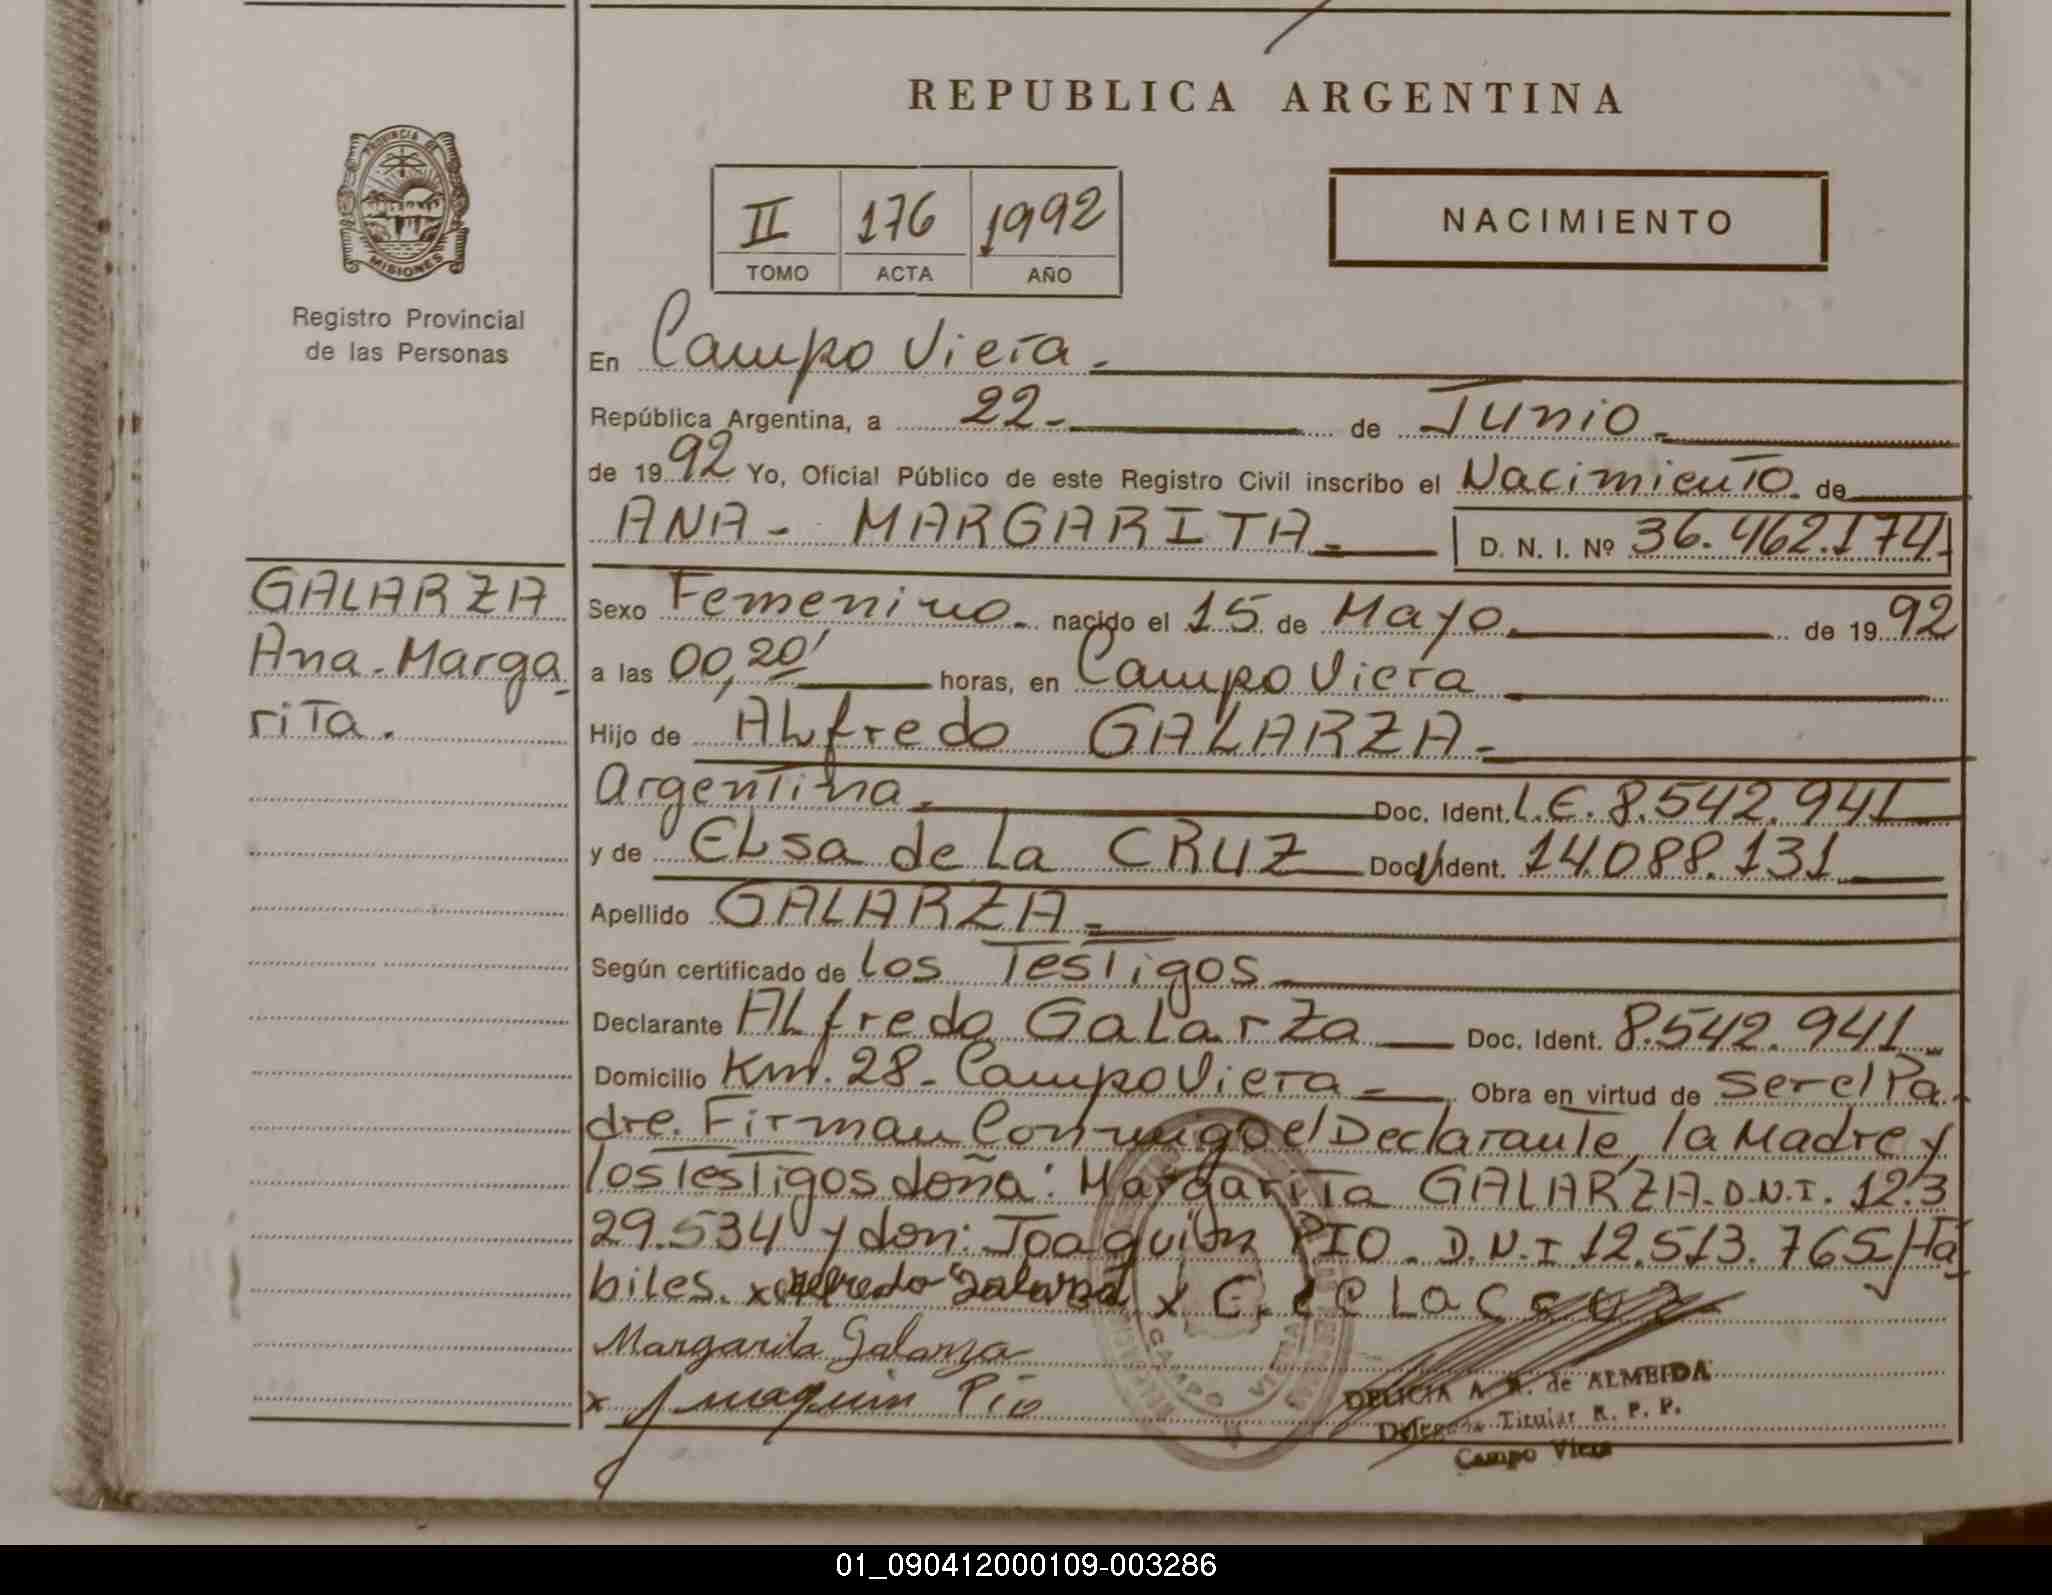 REPUBLICA ARGENTINA
PROVINCIA DE
MISIONES
Registro Provincial
de las Personas
II 176 1992
TOMO ACTA AÑO
NACIMIENTO
En Campo Viera.
República Argentina, a 22- de Junio.
de 1992 Yo, Oficial Público de este Registro Civil inscribo el Nacimiento. de
ANA- MARGARITA. D. N. I. Nº 36.462.174.
GALARZA
Ana. Marga
rita.
Sexo Femenino. nacido el 15 de Mayo de 1992
a las 00,20' horas, en Campo Viera
Hijo de ALfredo GALARZA-
Argentina. Doc. Ident. L.E. 8.542.941
y de ELsa de La CRUZ Doc. Ident. 14.088.131
Apellido GALARZA-
Según certificado de los Testigos
Declarante ALfredo GaLarza Doc. Ident. 8.542.941
Domicilio Km. 28- Campo Viera Obra en virtud de ser el Pa-
dre. Firman Conmigo el Declarante, la Madre y
los testigos doña: Margarita GALARZA-D.N.I. 12.3
29.534 y don: Joaquin PIO. D.N.I 12.513.765/Há
biles. x Alfredo Galarza x E. de La Cruz
Margarita Galarza
x Juaquin Pio
CAMPO VIERA
DELICIA A. de ALMEIDA
Delegada Titular R. P. P.
Campo Viera
01_090412000109-003286